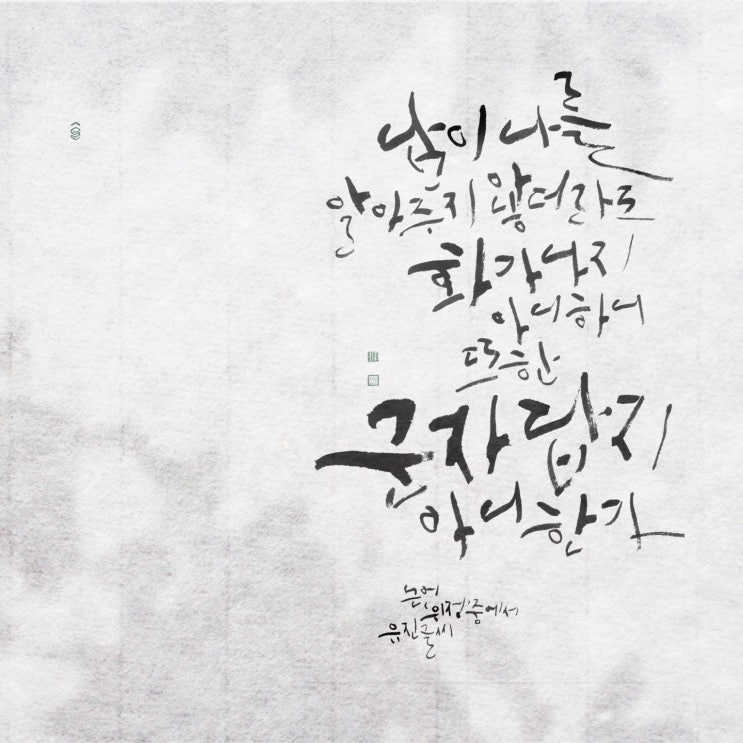 남이 나를
알아주지 않더라도
화가나지
아니하니
또한
군자답지
아니한가
논어
'위정'중에서
유진글씨